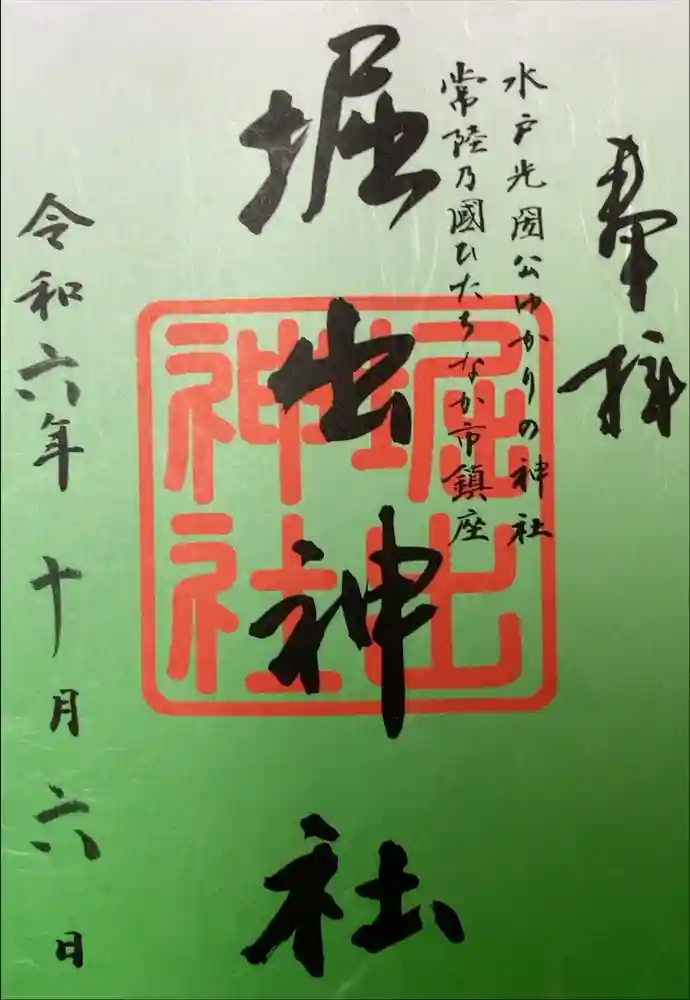 奉拝
水戸光圀公ゆかりの神社
常陸乃國ひたちなか市鎮座
堀出神社
堀出神社
令和六年 十月 六日